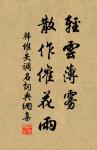 輕雲薄霧
散作催花雨
韓維失調名詞典網集